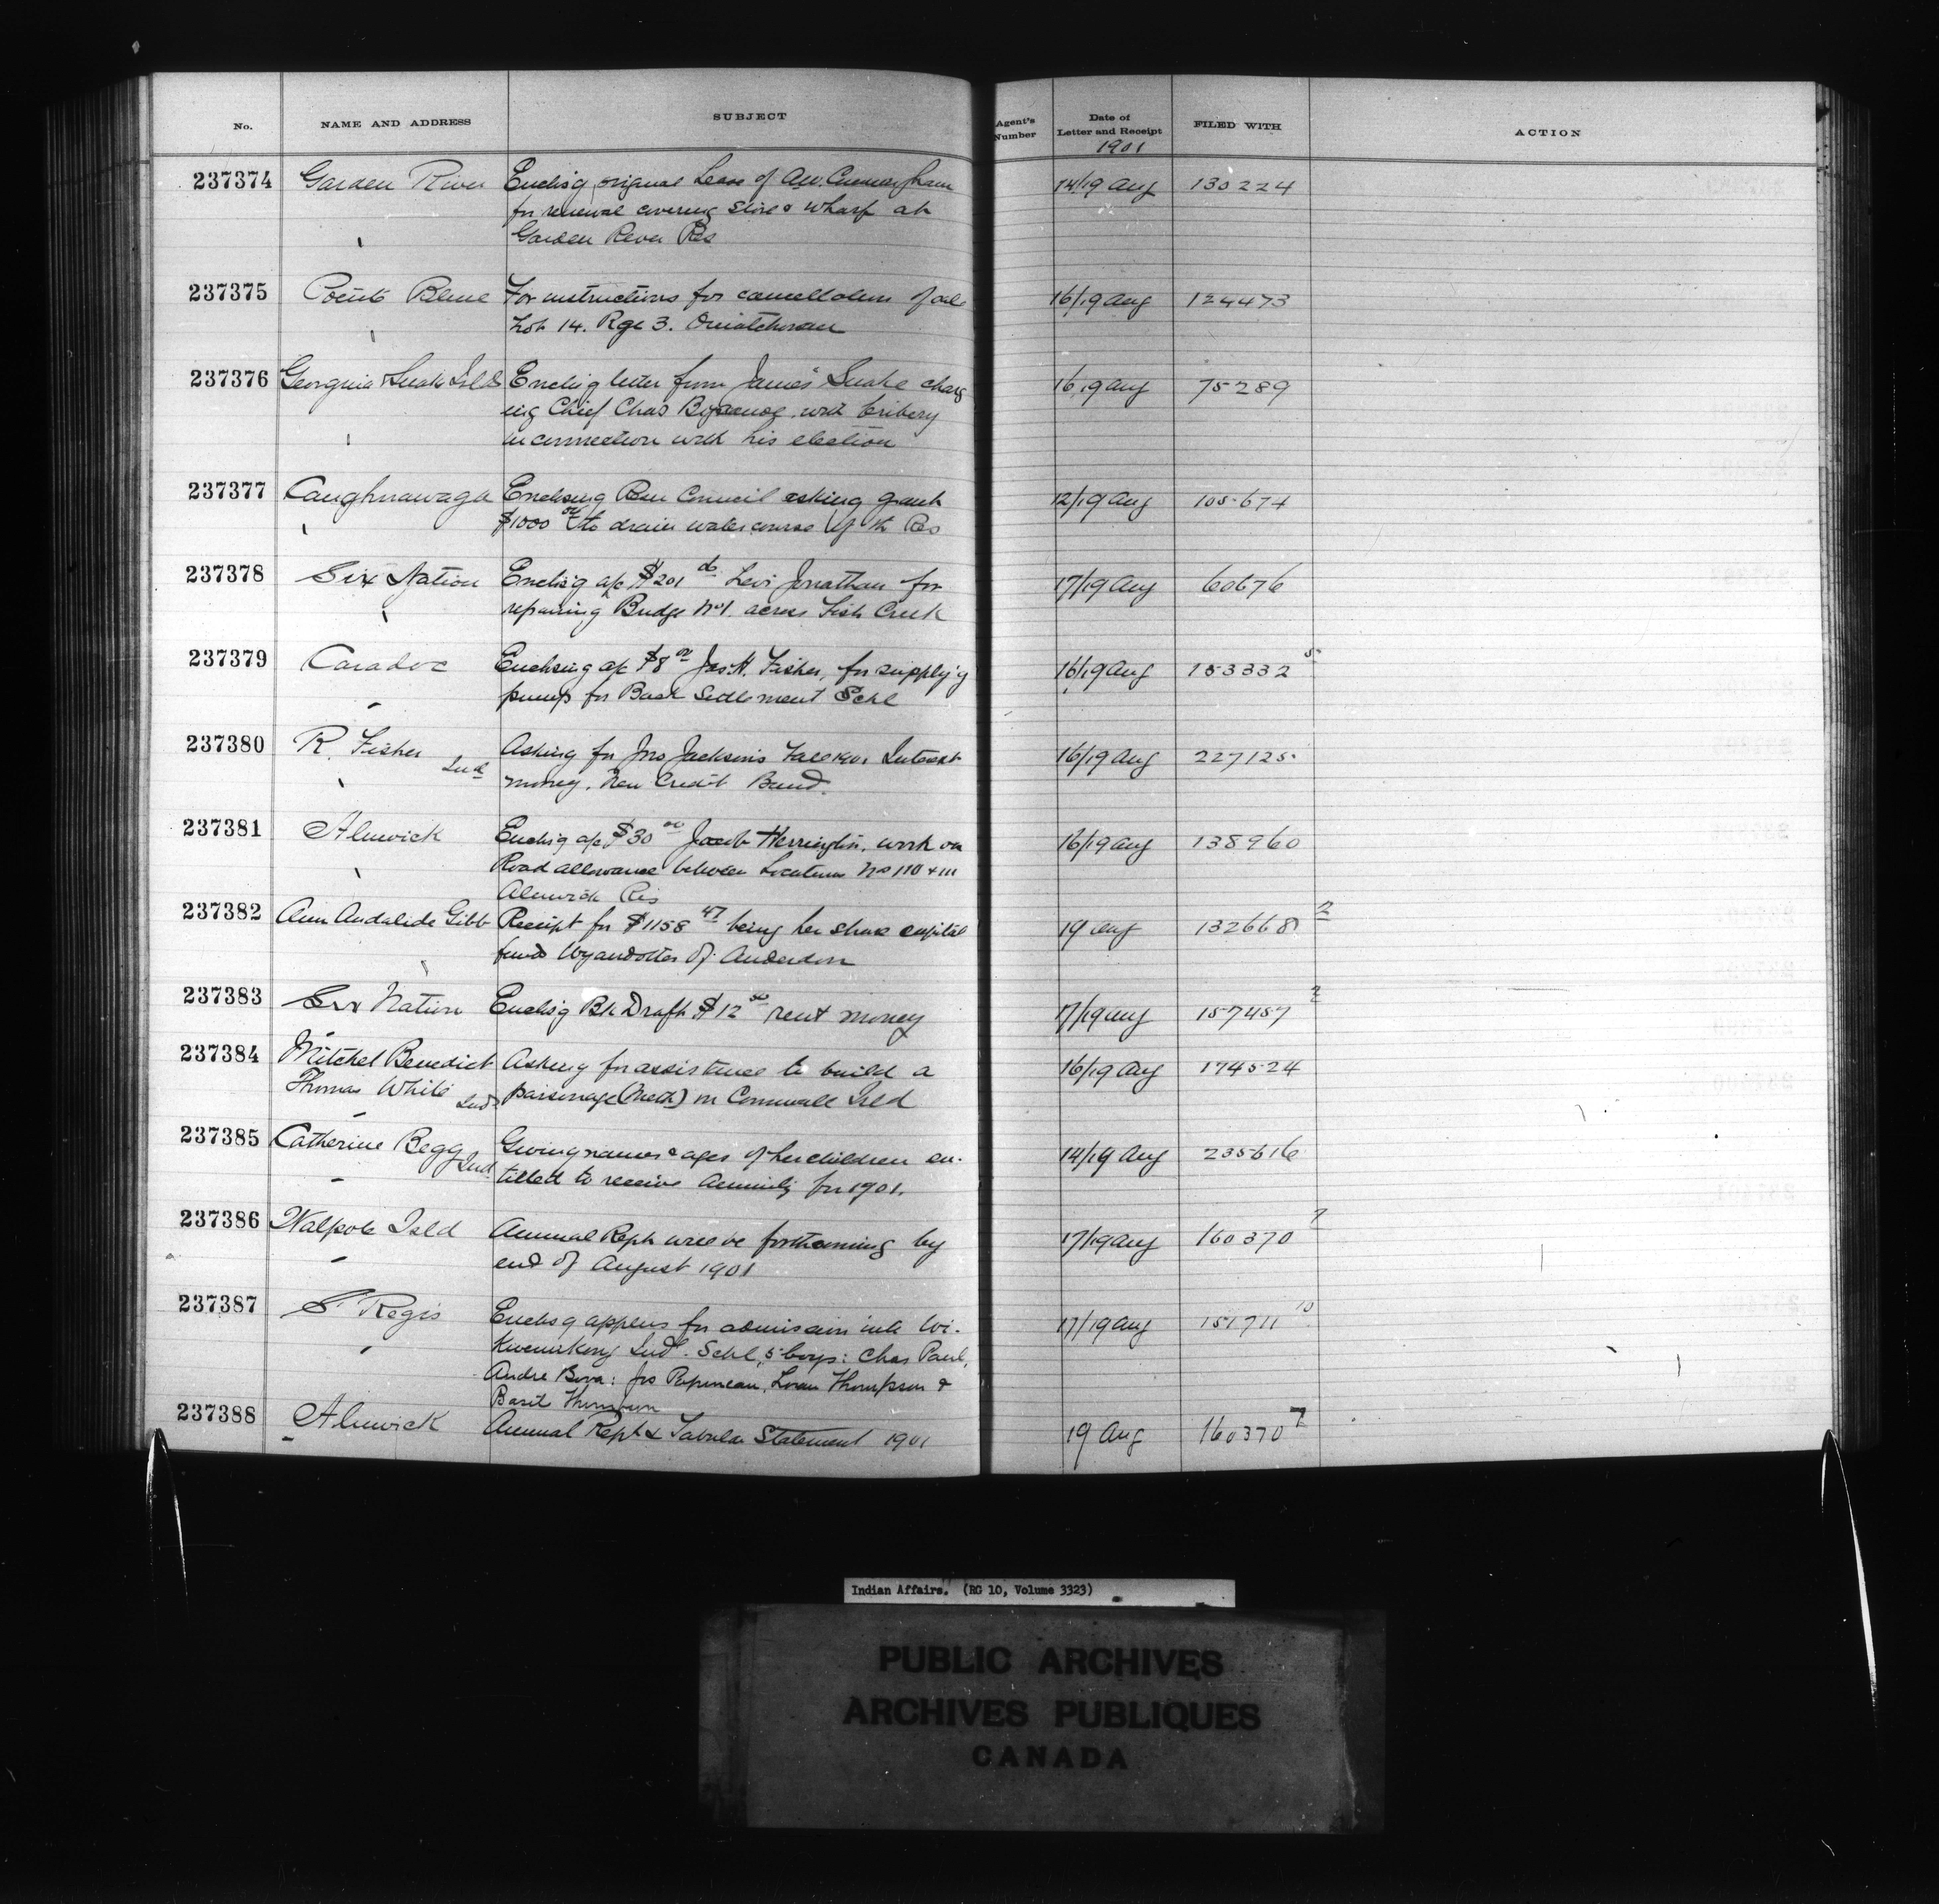 No. NAME AND ADDRESS SUBJECT Agent's Number Date of Letter and Receipt FILED WITH ACTION
1901
237374 Garden River Enclsg original Lease of A.W. Cunningham 14/19 Aug 130224
for renewal covering Store & Wharf at
Garden River Res
237375 Pointe Bleue For instructions for cancellation of sale 16/19 Aug 124473
Lot 14. Rge 3. Ouiatchouan
237376 Georgina & Snake Isld Enclsg letter from James Snake charg 16/19 Aug 75289
ing Chief Chas with bribery
in connection with his election
237377 Caughnawaga Enclosing Res Council asking grant 12/19 Aug 105674
$1000 00 to drain watercourse of the Res
237378 Six Nation Enclsg a/c $201 Levi Jonathan for 17/19 Aug 60676
repairing Bridge No 1. across Fish Creek
237379 Caradoc Enclosing a/c $8 00 Jas. H. Fisher, for supply'g 16/19 Aug 153332 5
pump for Back Settlement Schl
237380 R. Fisher Ind Asking for Jno Jackson's Fall 1901 Interest 16/19 Aug 227125
money. New Credit Band.
237381 Alnwick Enclsg a/c $30 00 Jacob Herrington, work on 16/19 Aug 138960
Road allowance between Locations Nos 110 & 111
Alnwick Res
237382 Ann Andalide Gibb Receipt for $1158 47 being her share capital 19 Aug 132668 2
funds Wyandottes of Anderdon
237383 Six Nation Enclsg Bk Draft $12 50 rent money 17/19 Aug 157457 2
237384 Mitchel Benedict Asking for assistance to build a 16/19 Aug 174524
Thomas White Inds parsonage (Meth) on Cornwall Isld
237385 Catherine Begg Ind Giving names & ages of her children en- 14/19 Aug 235616
titled to receive Annuity for 1901.
237386 Walpole Isld Annual Rept will be forthcoming by 17/19 Aug 160370 7
end of August 1901
237387 St Regis Enclsg applcns for admission into Wi- 17/19 Aug 151711 10
kwemikong Indl. Schl, 5 boys: Chas Paul,
Andre Bova: Jos Papineau, Loran Thompson &
Basil Thompson
237388 Alnwick Annual Rept & Tabular Statement 1901 19 Aug 160370 7
Indian Affairs. (RG 10, Volume 3323)
PUBLIC ARCHIVES
ARCHIVES PUBLIQUES
CANADA